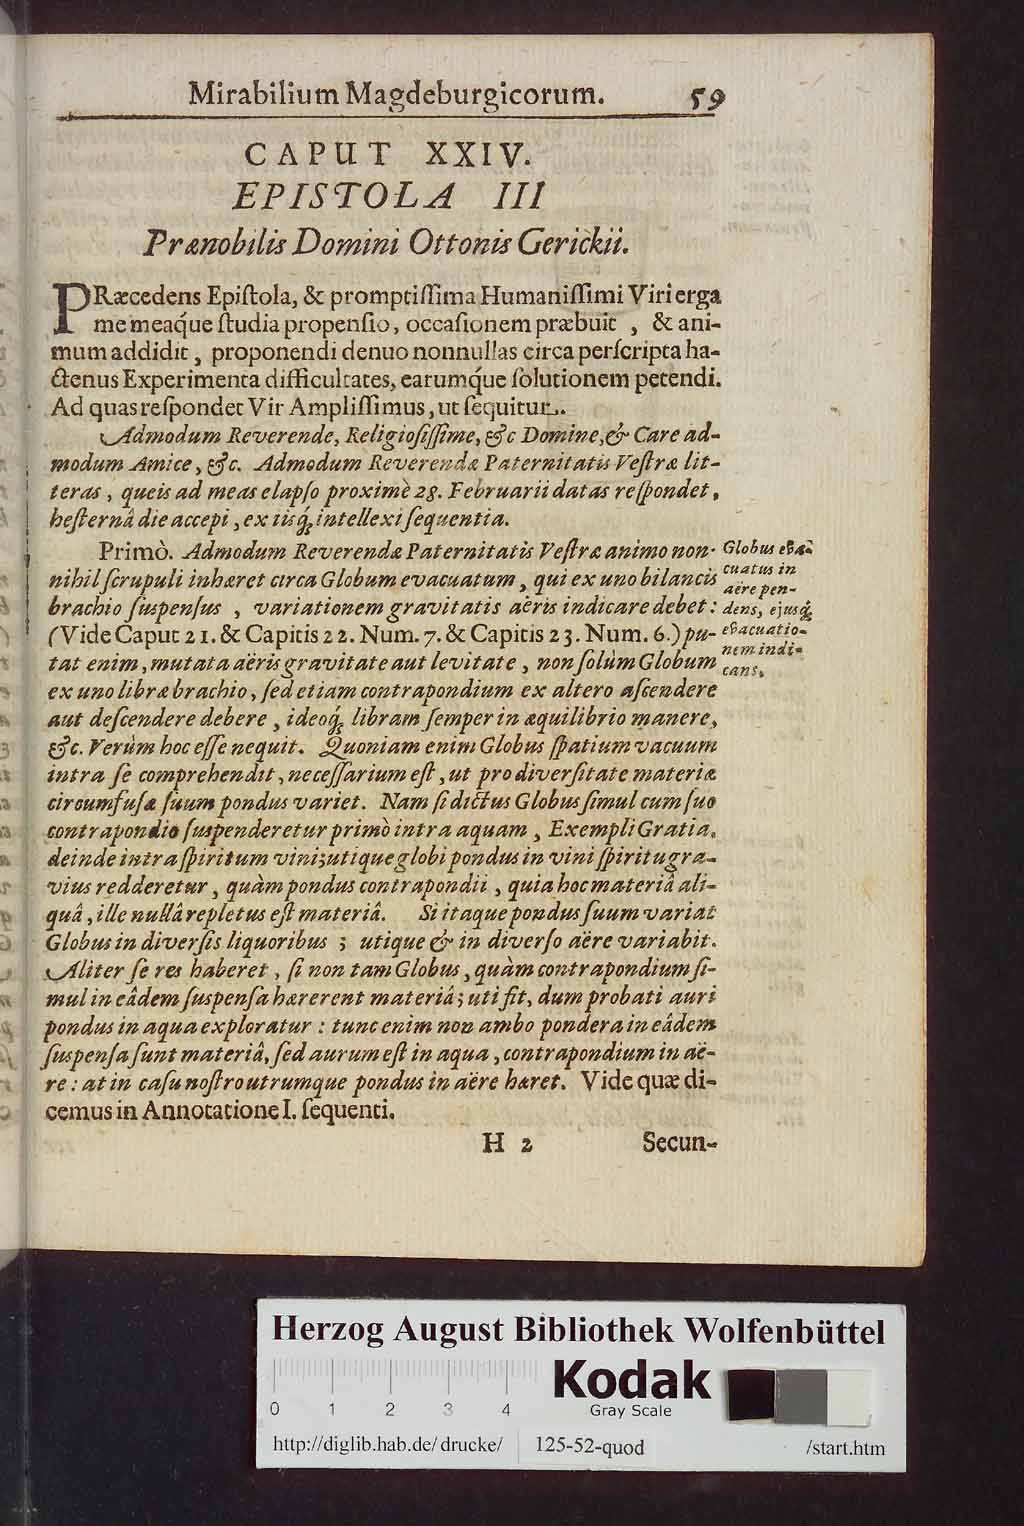 Mirabilium Magdeburgicorum. 59
CAPUT XXIV.
EPISTOLA III
Prænobilis Domini Ottonis Gerickii.
PRæcedens Epiſtola, & promptiſſima Humaniſſimi Viri erga
me meaq́ue ſtudia propenſio, occaſionem præbuit , & ani-
mum addidit, proponendi denuo nonnullas circa perſcripta ha-
ctenus Experimenta difficultates, earumq́ue ſolutionem petendi.
Ad quas reſpondet Vir Ampliſſimus, ut ſequitur.
Admodum Reverende, Religioſiſſime, &c Domine, & Care ad-
modum Amice, &c. Admodum Reverendæ Paternitatis Veſtræ lit-
teras, queis ad meas elapſo proximè 28. Februarii datas reſpondet,
heſternâ die accepi, ex iisq́; intellexi ſequentia.
Primò. Admodum Reverendæ Paternitatis Veſtræ animo non-
nihil ſcrupuli inhæret circa Globum evacuatum, qui ex uno bilancis
brachio ſuſpenſus , variationem gravitatis aëris indicare debet:
(Vide Caput 21. & Capitis 22. Num. 7. & Capitis 23. Num. 6.) pu-
tat enim, mutata aëris gravitate aut levitate, non ſolùm Globum
ex uno libræ brachio, ſed etiam contrapondium ex altero aſcendere
aut deſcendere debere, ideoq́; libram ſemper in æquilibrio manere,
&c. Verùm hoc eſſe nequit. Quoniam enim Globus ſpatium vacuum
intra ſe comprehendit, neceſſarium eſt, ut pro diverſitate materiæ
circumfuſæ ſuum pondus variet. Nam ſi dictus Globus ſimul cum ſuo
contrapondio ſuſpenderetur primò intra aquam, Exempli Gratia,
deinde intra ſpiritum vini; utique globi pondus in vini ſpiritu gra-
vius redderetur, quàm pondus contrapondii, quia hoc materiâ ali-
quâ, ille nullâ repletus eſt materiâ. Si itaque pondus ſuum variat
Globus in diverſis liquoribus ; utique & in diverſo aëre variabit.
Aliter ſe res haberet, ſi non tam Globus, quàm contrapondium ſi-
mul in eâdem ſuſpenſa hærerent materiâ; uti fit, dum probati auri
pondus in aqua exploratur : tunc enim non ambo pondera in eâdem
ſuſpenſa ſunt materiâ, ſed aurum eſt in aqua, contrapondium in aë-
re: at in caſu noſtro utrumque pondus in aëre hæret. Vide quæ di-
cemus in Annotatione I. ſequenti.
H 2 Secun-
Globus eva-
cuatus in
aëre pen-
dens, ejusq́;
evacuatio-
nem indi-
cans.
Herzog August Bibliothek Wolfenbüttel
0 1 2 3 4
Kodak
Gray Scale
http://diglib.hab.de/drucke/ 125-52-quod /start.htm